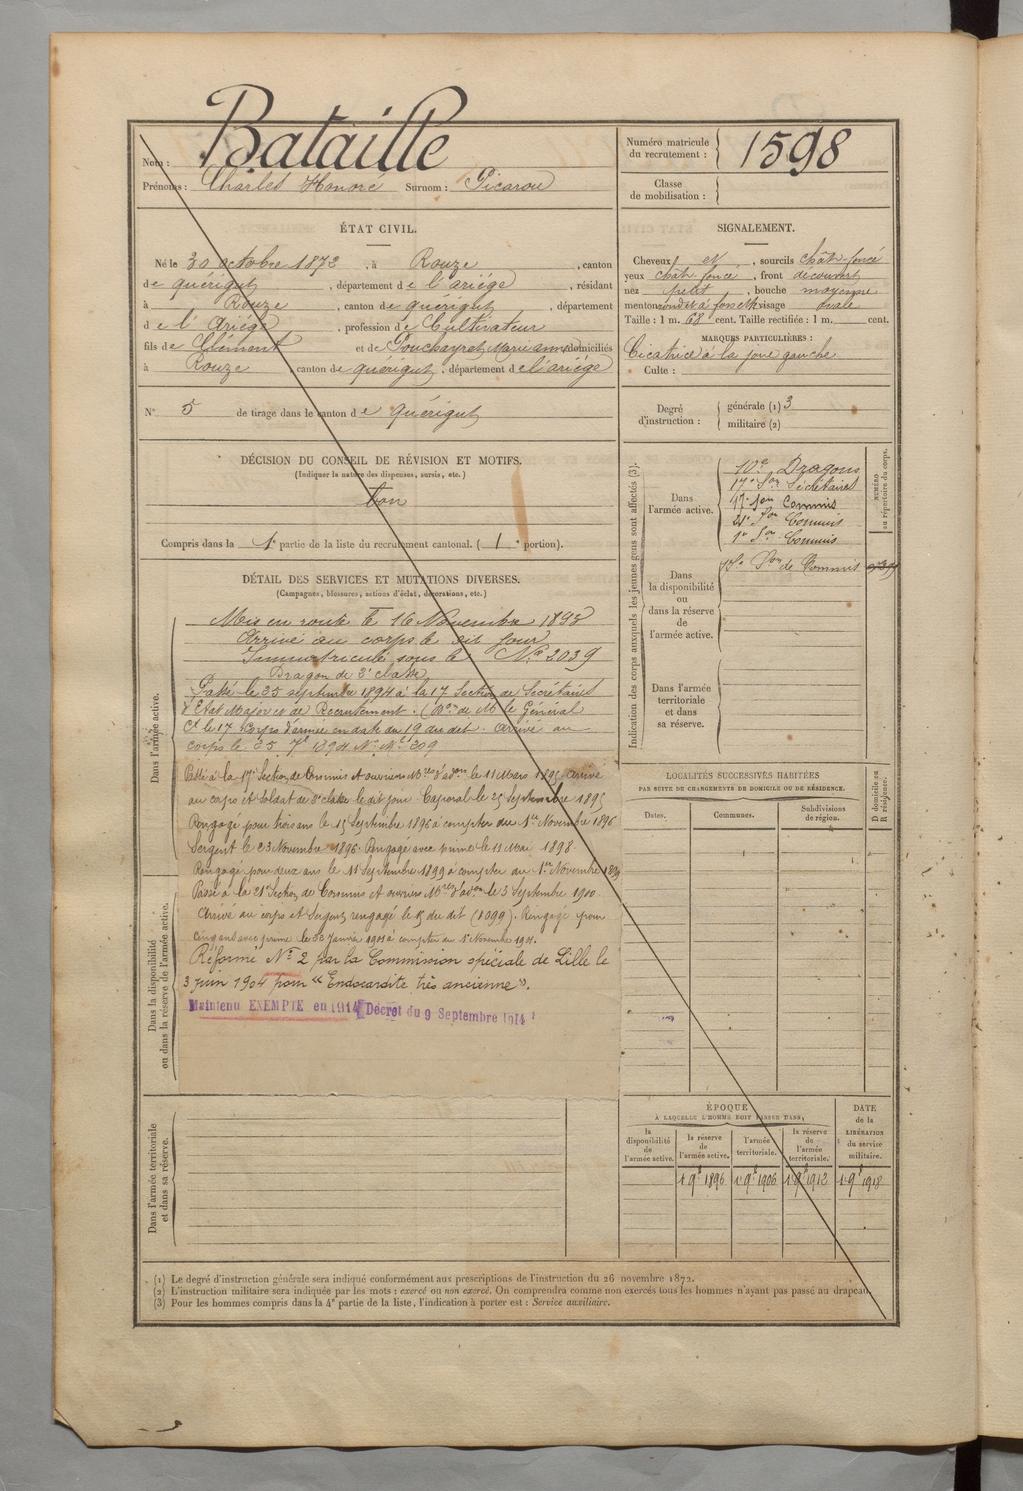 Nom : Bataille
Prénoms : Charles Honoré Surnom : Picarou
Numéro matricule
du recrutement : 1598
Classe
de mobilisation :
ÉTAT CIVIL.
Né le 30 octobre 1872, à Rouze, canton
de quérigut, département de l'ariége, résidant
à Rouze, canton de quérigut, département
de l'Ariége, profession de Cultivateur
fils de Clément et de Pouchayret Marie anne domiciliés
à Rouze, canton de quérigut, département de l'ariége
N° 5 de tirage dans le canton de quérigut
SIGNALEMENT.
Cheveux et, sourcils chât-foncé
yeux chât-foncé, front découvert
nez petit, bouche moyenne
menton rond et à fossette visage ovale
Taille : 1 m. 68 cent. Taille rectifiée : 1 m. cent.
MARQUES PARTICULIÈRES :
Cicatrice à la joue gauche
Culte :
Degré
d'instruction :
générale (1) 3
militaire (2)
DÉCISION DU CONSEIL DE RÉVISION ET MOTIFS.
(Indiquer la nature des dispenses, sursis, etc.)
bon
Compris dans la 1e partie de la liste du recrutement cantonal. (1e portion).
Indication des corps auxquels les jeunes gens sont affectés (3).
Dans
l'armée active.
10e Dragons
17e Son Secrétaires
17e Son Commis
21e Son Commis
1e Son Commis
NUMÉRO
au répertoire du corps.
Dans
la disponibilité
ou
dans la réserve
de
l'armée active.
17e Son de Commis
Dans l'armée
territoriale
et dans
sa réserve.
DÉTAIL DES SERVICES ET MUTATIONS DIVERSES.
(Campagnes, blessures, actions d'éclat, décorations, etc.)
Dans l'armée active.
Mis en route le 16 Novembre 1893
Arrivé au corps le dit jour
Immatriculé sous le No 2039
Dragon de 2e classe
Passé le 25 septembre 1894 à la 17 Section de Secrétaires
d'Etat Major et de Recrutement. (Don de Mr le Général
Ct le 17e Corps d'armée en date du 19 du dit. Arrivé au
corps le 25 7e 1894 No Me 209
Passé à la 17e Section de Commis et ouvriers Mres d'adon le 11 Mars 1895 arrivé
au corps et Soldat de 2e classe le dit jour. Caporal le 25 Septembre 1895
Rengagé pour trois ans le 15 Septembre 1896 à compter du 1er Novembre 1896
Sergent le 23 Novembre 1896. Rengagé avec prime le 11 Mai 1898.
Rengagé pour deux ans le 11 Septembre 1899 à compter du 1er Novembre 1899
Passé à la 21e Section de Commis et ouvriers Mres d'adon le 3 Septembre 1900
Arrivé au corps et Sergent rengagé le 5 du dit (1099). Rengagé pour
cinq ans avec prime le 30 Janvier 1901 à compter du 1er Novembre 1901.
Réformé No 2 par la Commission spéciale de Lille le
3 juin 1904 pour "Endocardite très ancienne".
Maintenu EXEMPTÉ en 1914 Décret du 9 Septembre 1914
Dans la disponibilité
ou dans la réserve de l'armée active.
Dans l'armée territoriale
et dans sa réserve.
LOCALITÉS SUCCESSIVES HABITÉES
PAR SUITE DE CHANGEMENTS DE DOMICILE OU DE RÉSIDENCE.
Dates. Communes. Subdivisions
de région.
D domicile ou
R résidence.
ÉPOQUE
À LAQUELLE L'HOMME DOIT PASSER DANS
la
disponibilité
de
l'armée active.
la réserve
de
l'armée active.
l'armée
territoriale.
la réserve
de
l'armée
territoriale.
DATE
de la
LIBÉRATION
du service
militaire.
1er 9e 1896 1er 9e 1906 1er 9e 1912 1er 9e 1918
(1) Le degré d'instruction générale sera indiqué conformément aux prescriptions de l'instruction du 26 novembre 1872.
(2) L'instruction militaire sera indiquée par les mots : exercé ou non exercé. On comprendra comme non exercés tous les hommes n'ayant pas passé au drapeau.
(3) Pour les hommes compris dans la 4e partie de la liste, l'indication à porter est : Service auxiliaire.